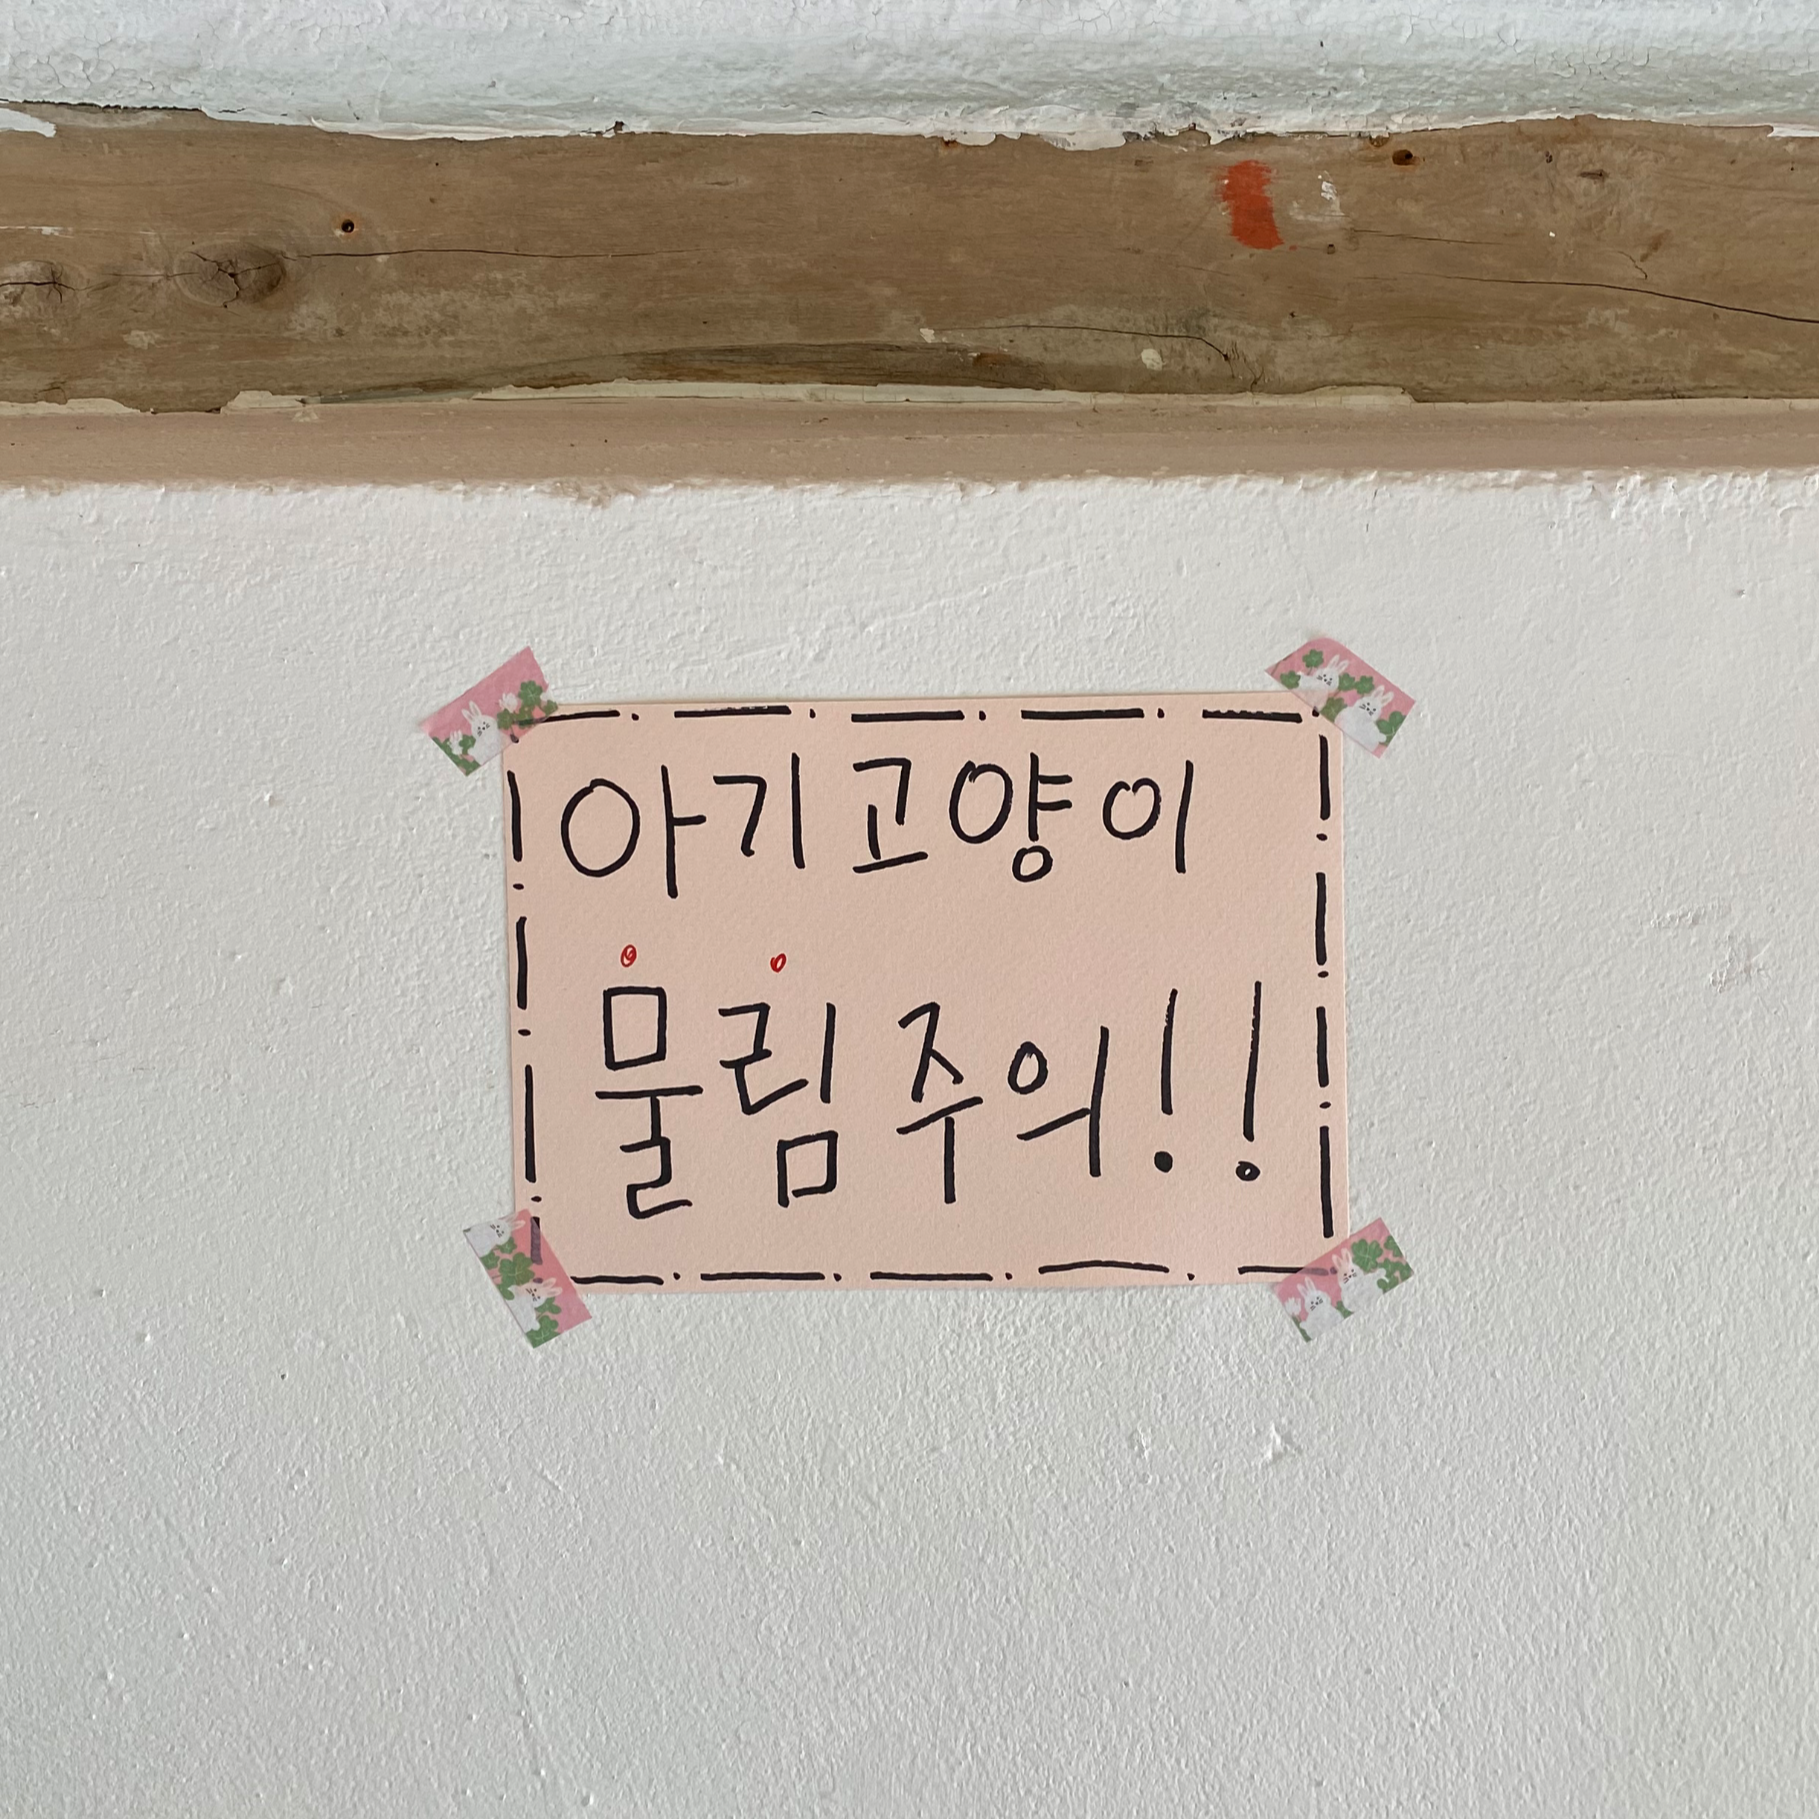 아기 고양이
물림 주의!!